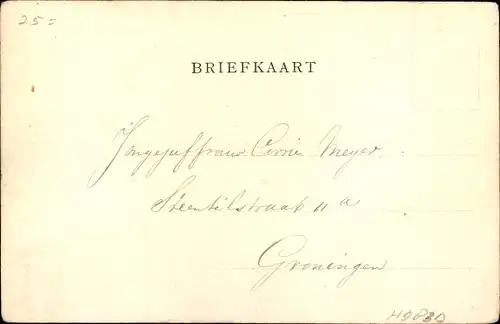 25=
BRIEFKAART
Jongejuffrouw Corrie Meyer.
Steentilstraat 11a
Groningen